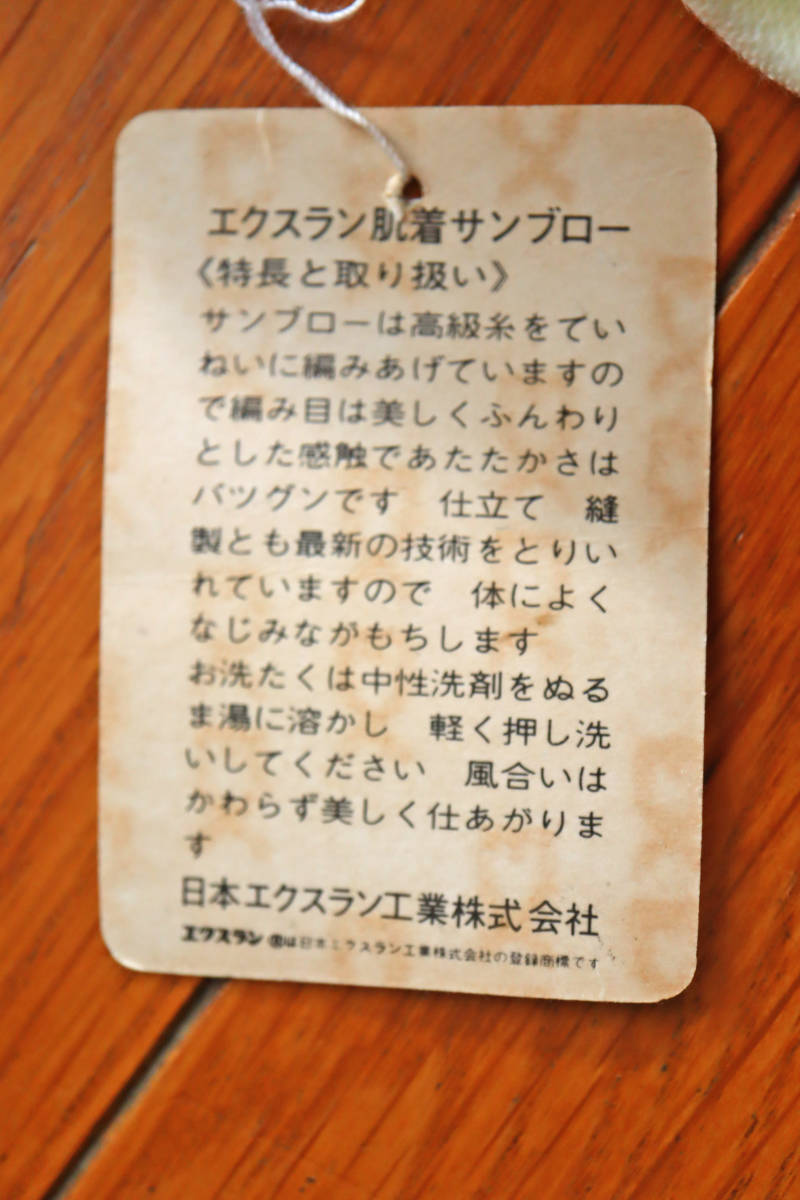 エクスラン肌着サンブロー
《特長と取り扱い》
サンブローは高級糸をてい
ねいに編みあげていますの
で編み目は美しくふんわり
とした感触であたたかさは
バツグンです　仕立て　縫
製とも最新の技術をとりい
れていますので　体によく
なじみながもちします
お洗たくは中性洗剤をぬる
ま湯に溶かし　軽く押し洗
いしてください　風合いは
かわらず美しく仕あがりま
す
日本エクスラン工業株式会社
エクスラン®は日本エクスラン工業株式会社の登録商標です